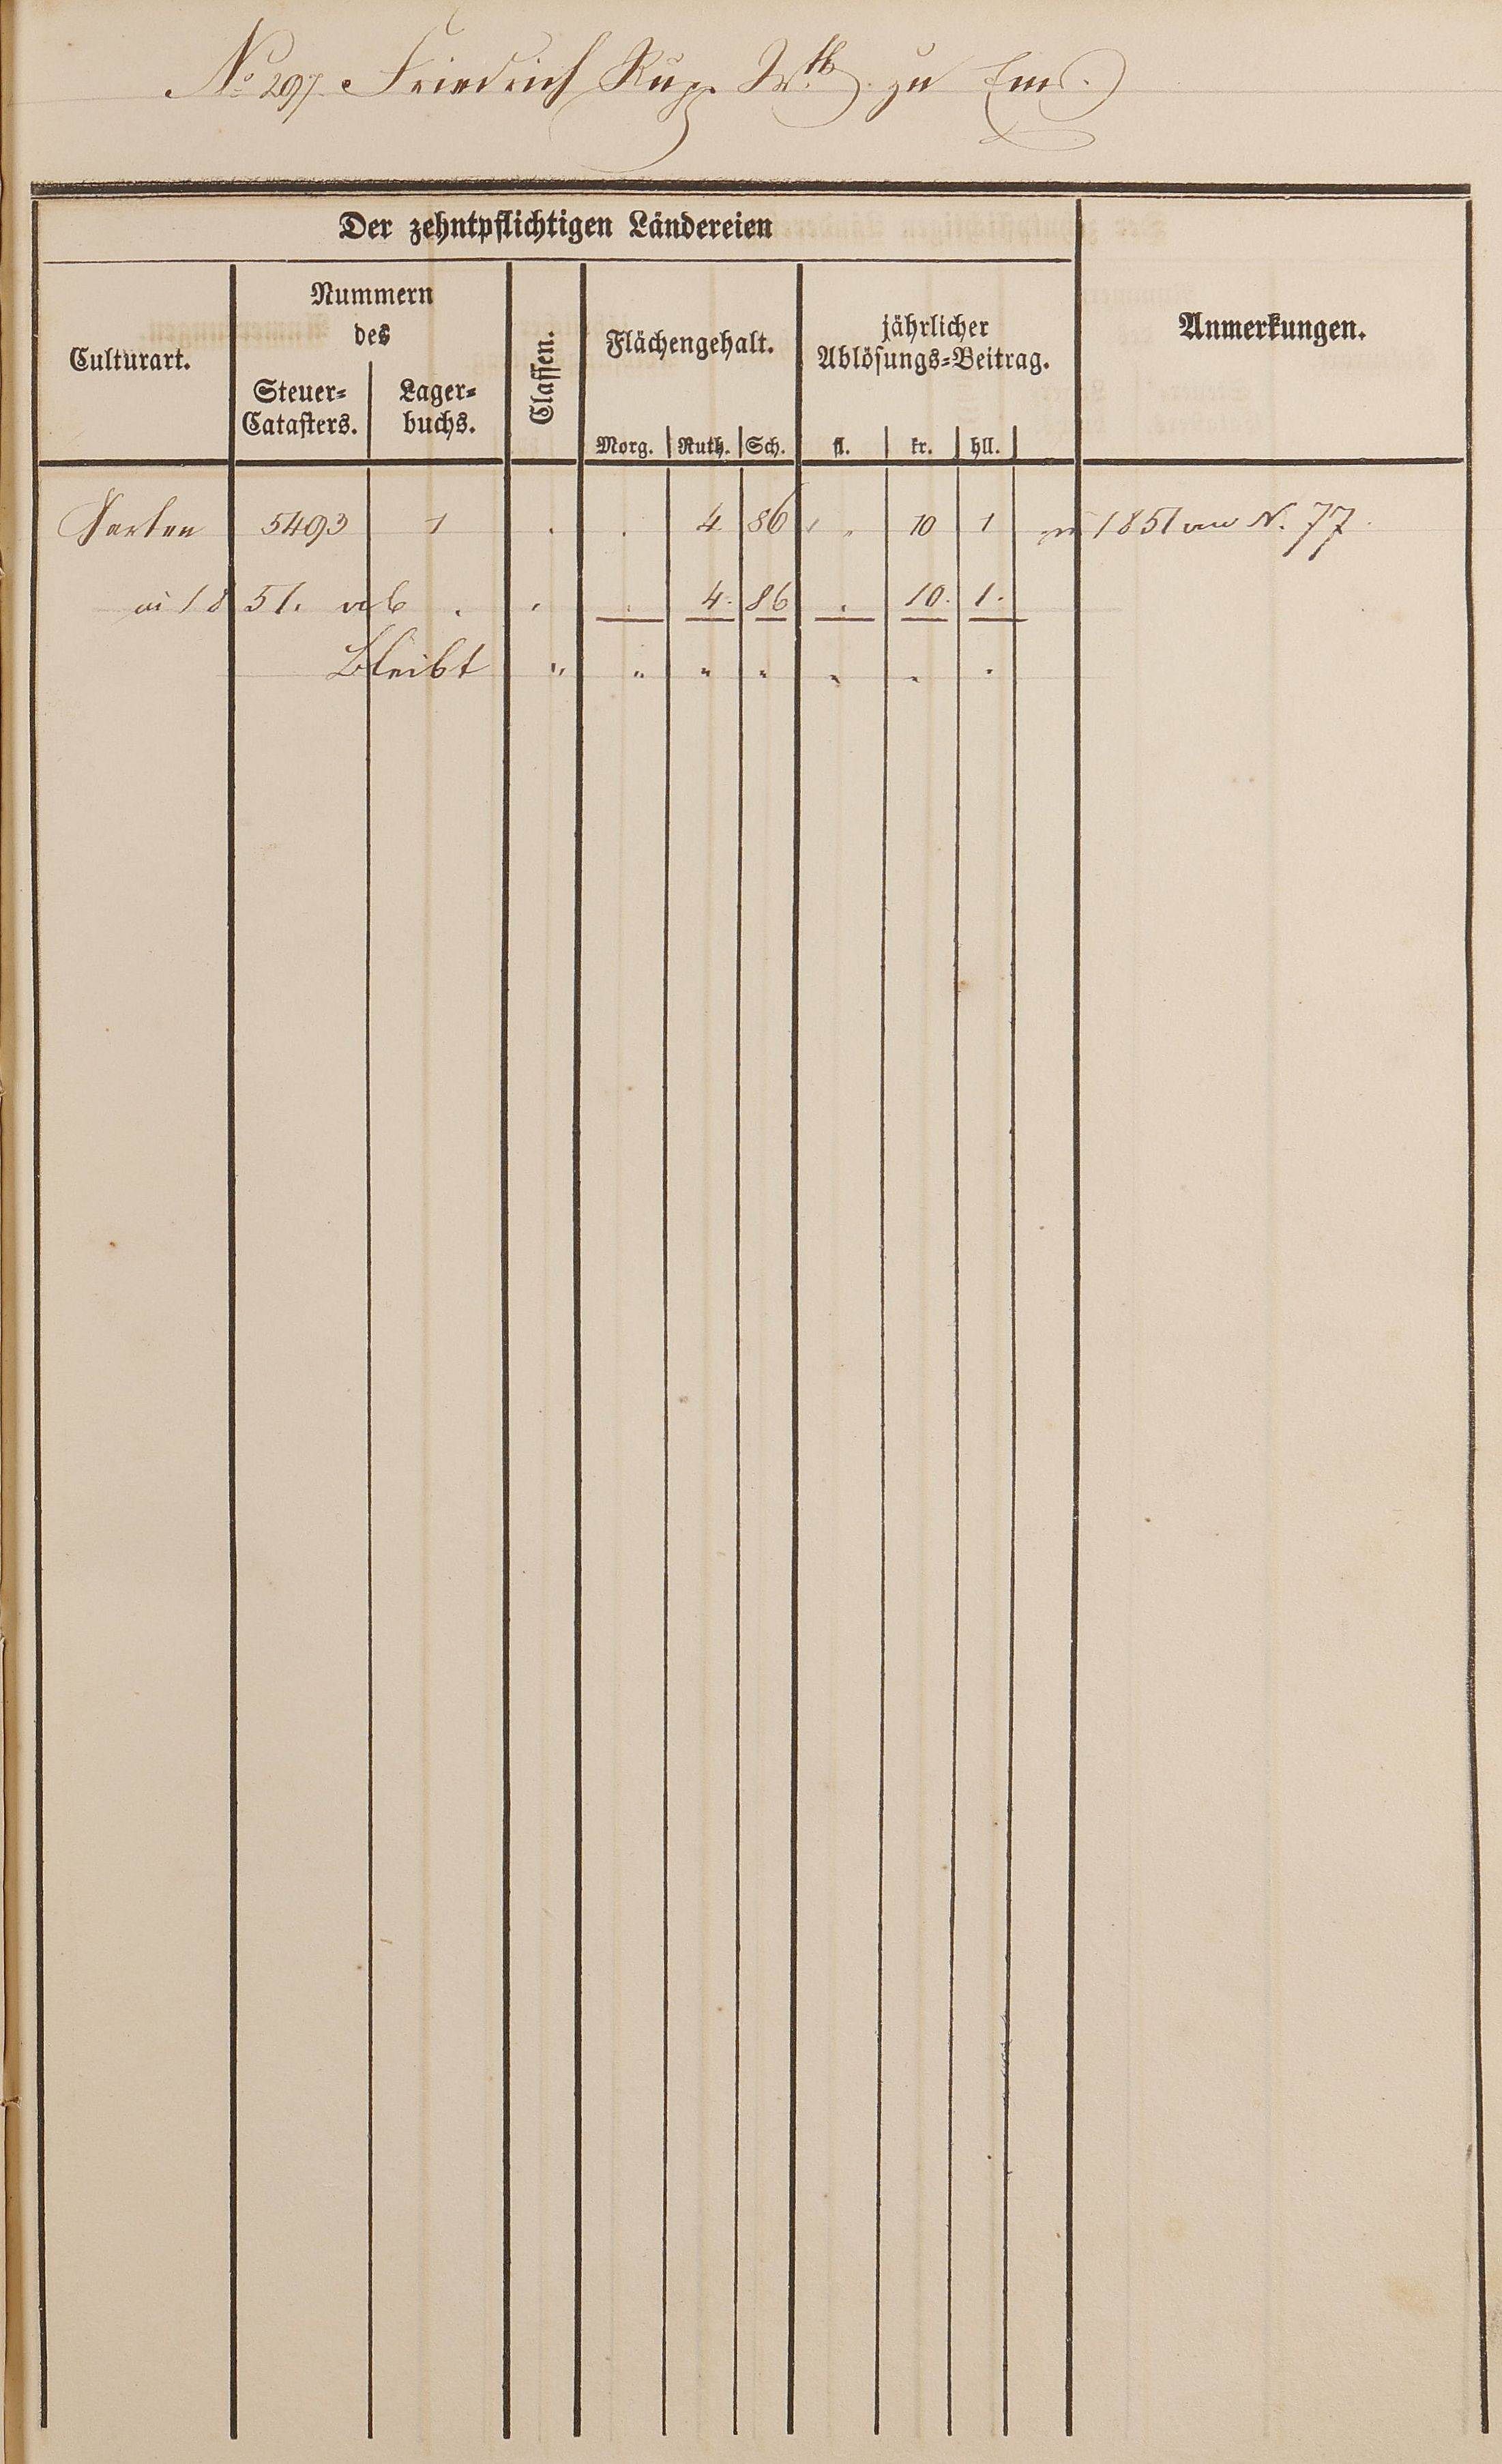 No 297. Friedrich Rupp Wtb. zu Ems.
Der zehntpflichtigen Ländereien
Culturart.
Nummern
des
Steuer-
Catasters.
Lager-
buchs.
Classen.
Flächengehalt.
Morg. Ruth. Sch.
jährlicher
Ablösungs-Beitrag.
fl. kr. hll.
Anmerkungen.
Garten 5493 1 . . 4. 86 " 10 1 1851 an N. 77.
1851. ab . . . 4. 86 . 10. 1.
Bleibt " " " " " " "